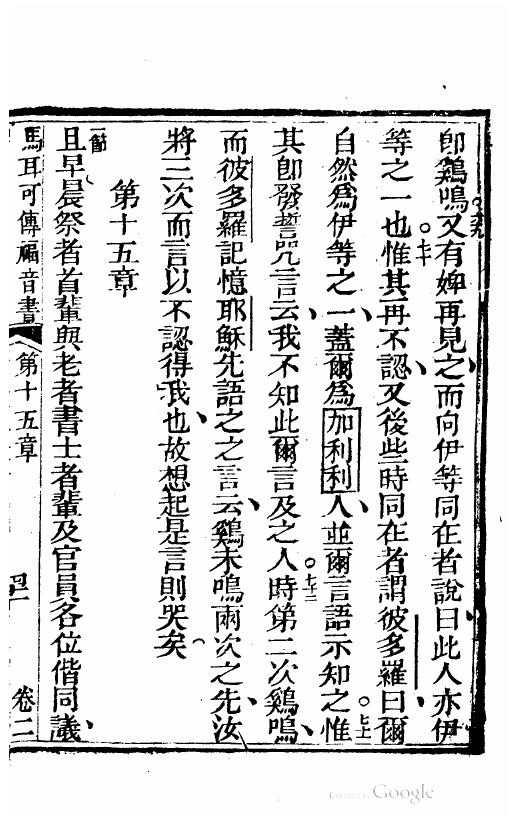 卽鷄鳴○六九又有婢再見之而向伊等同在者說曰此人亦伊
等之一也○七十惟其再不認又後些時同在者謂彼多羅曰爾
自然爲伊等之一蓋爾爲加利利人並爾言語示知之○七十一惟
其卽發誓咒言云我不知此爾言及之人○七十二時第二次鷄鳴
而彼多羅記憶耶穌先語之之言云鷄未鳴兩次之先汝
將三次而言以不認得我也故想起是言則哭矣
第十五章
一節且早晨祭者首輩與老者書士者輩及官員各位偕同議
馬耳可傳福音書 第十五章 四二 卷二
Digitized by Google